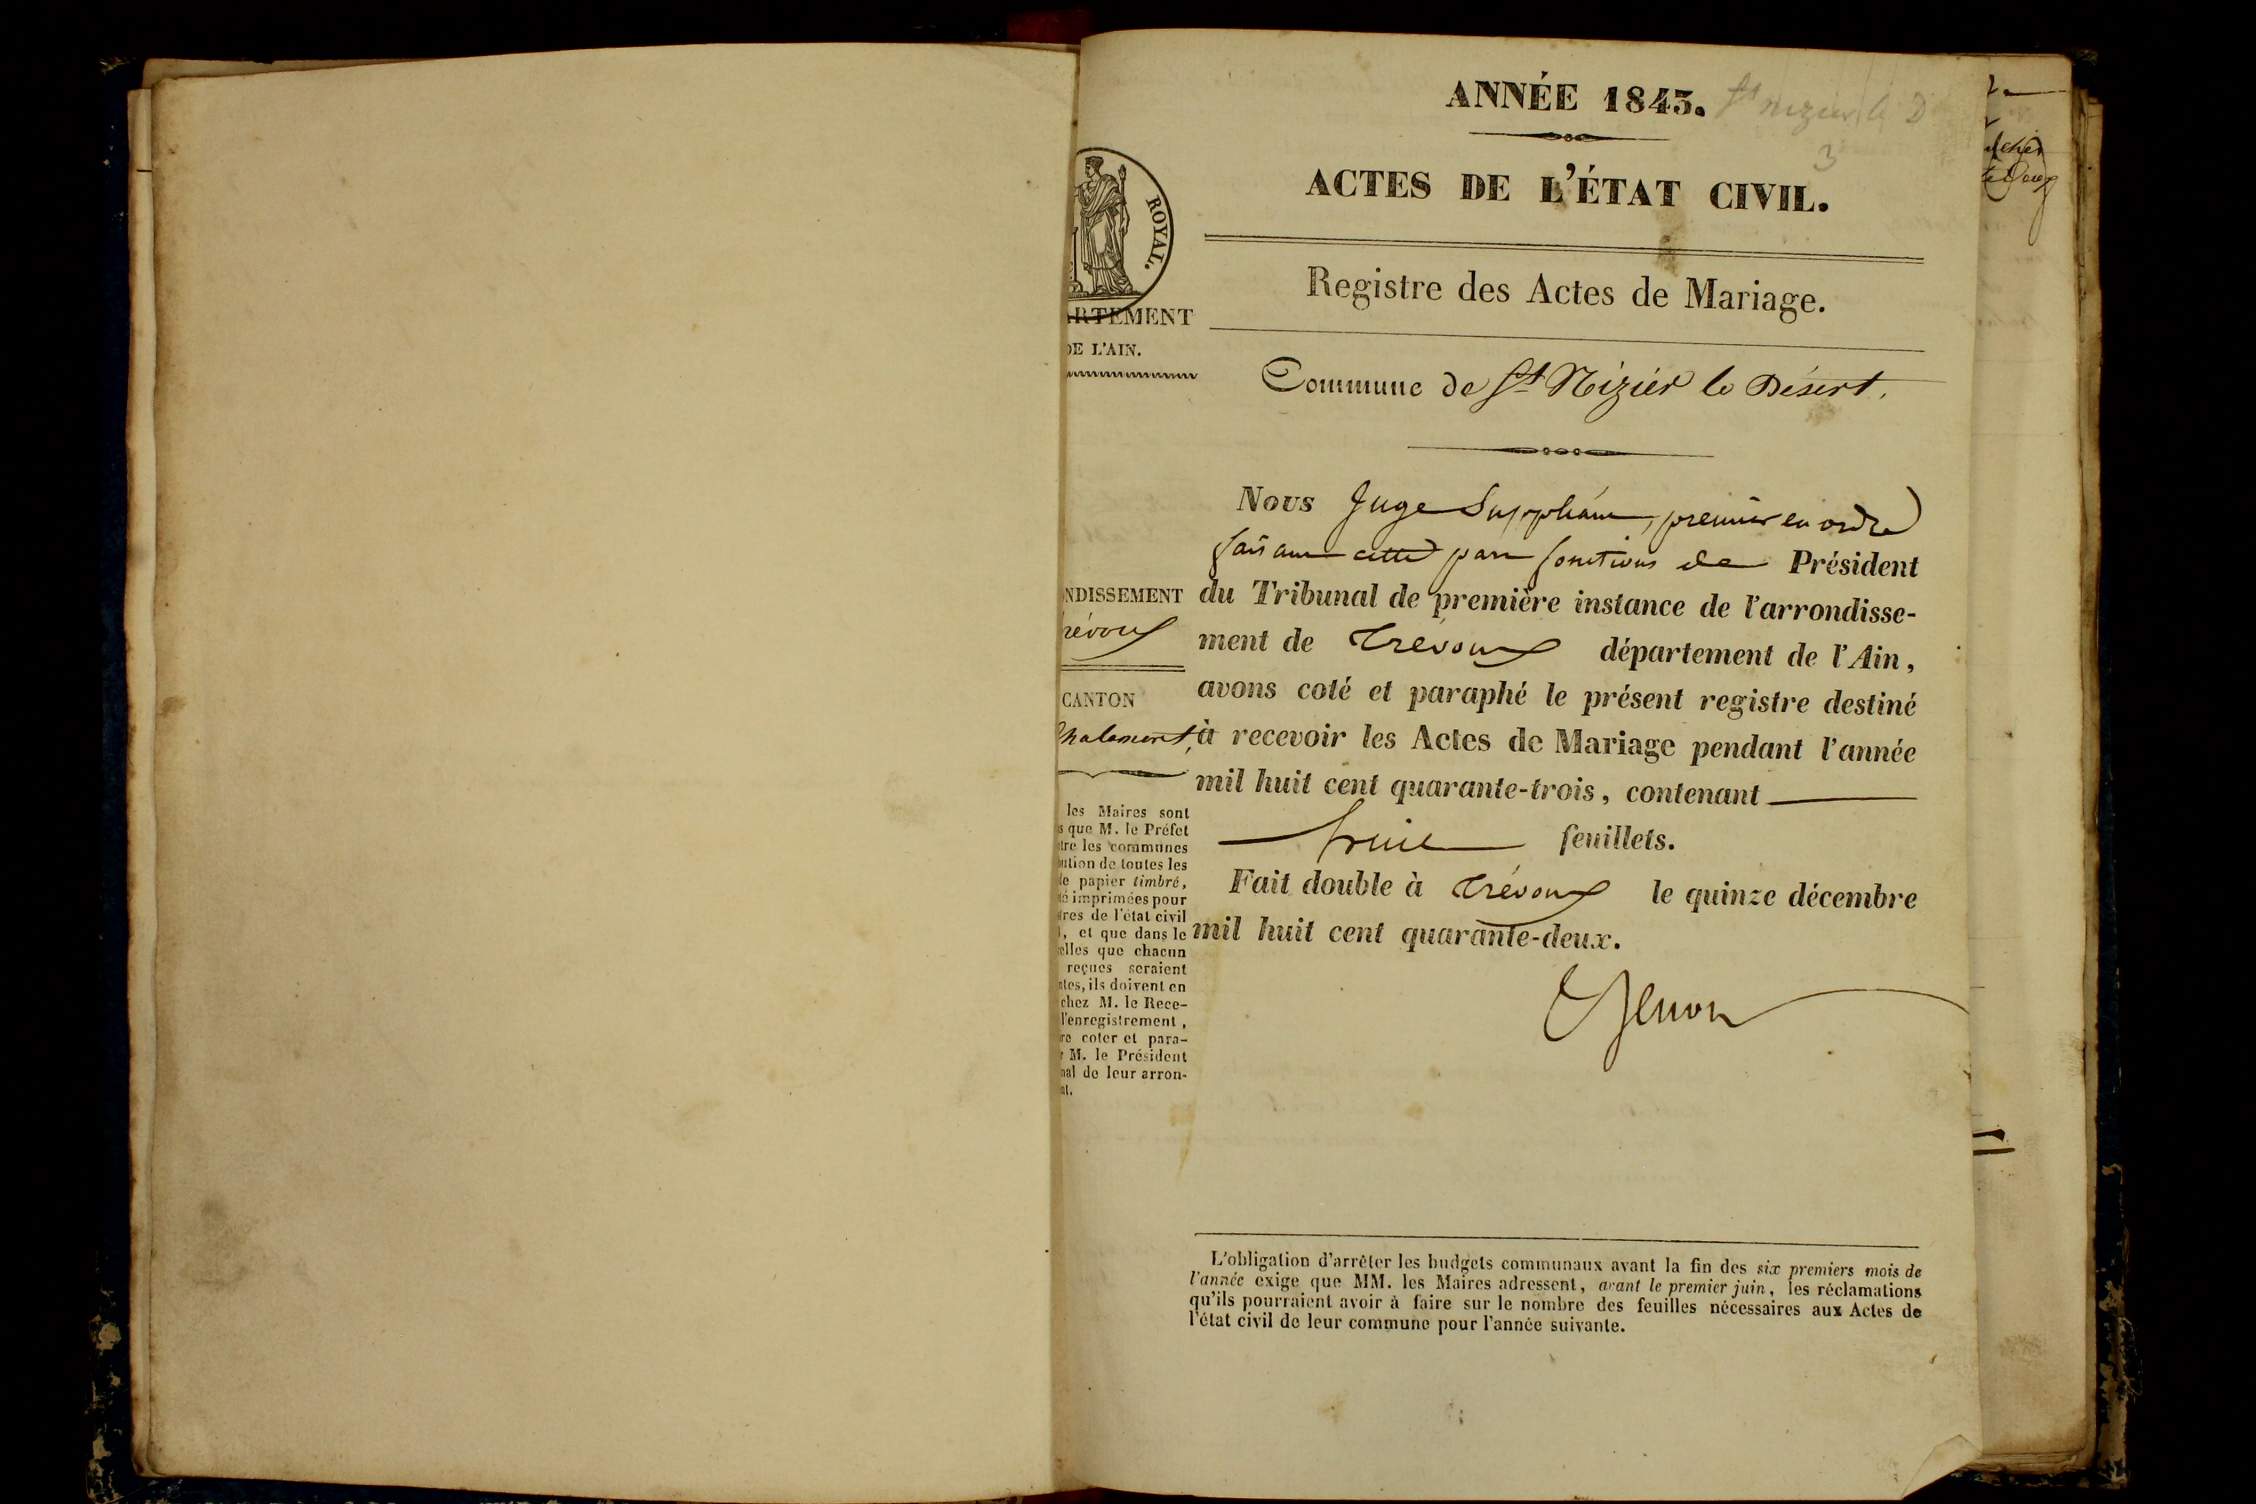 ANNÉE 1843. St nizier le D
3
ACTES DE L'ÉTAT CIVIL.
ROYAL.
Registre des Actes de Mariage.
ARTEMENT
DE L'AIN.
Commune de St Nizier le Désert.
Nous Juge Suppléant, premier en ordre
faisant cette part fonctions de Président
du Tribunal de première instance de l'arrondisse-
ment de Trévoux département de l'Ain,
avons coté et paraphé le présent registre destiné
à recevoir les Actes de Mariage pendant l'année
mil huit cent quarante-trois, contenant
huit feuillets.
Fait double à Trévoux le quinze décembre
mil huit cent quarante-deux.
NDISSEMENT
révoux
CANTON
halamont,
les Maires sont
s que M. le Préfet
tre les communes
ution de toutes les
de papier timbré,
té imprimées pour
tres de l'état civil
, et que dans le
elles que chacun
reçues seraient
ntes, ils doivent en
chez M. le Rece-
l'enregistrement,
re coter et para-
r M. le Président
nal de leur arron-
nt.
L'obligation d'arrêter les budgets communaux avant la fin des six premiers mois de
l'année exige que MM. les Maires adressent, avant le premier juin, les réclamations
qu'ils pourraient avoir à faire sur le nombre des feuilles nécessaires aux Actes de
l'état civil de leur commune pour l'année suivante.